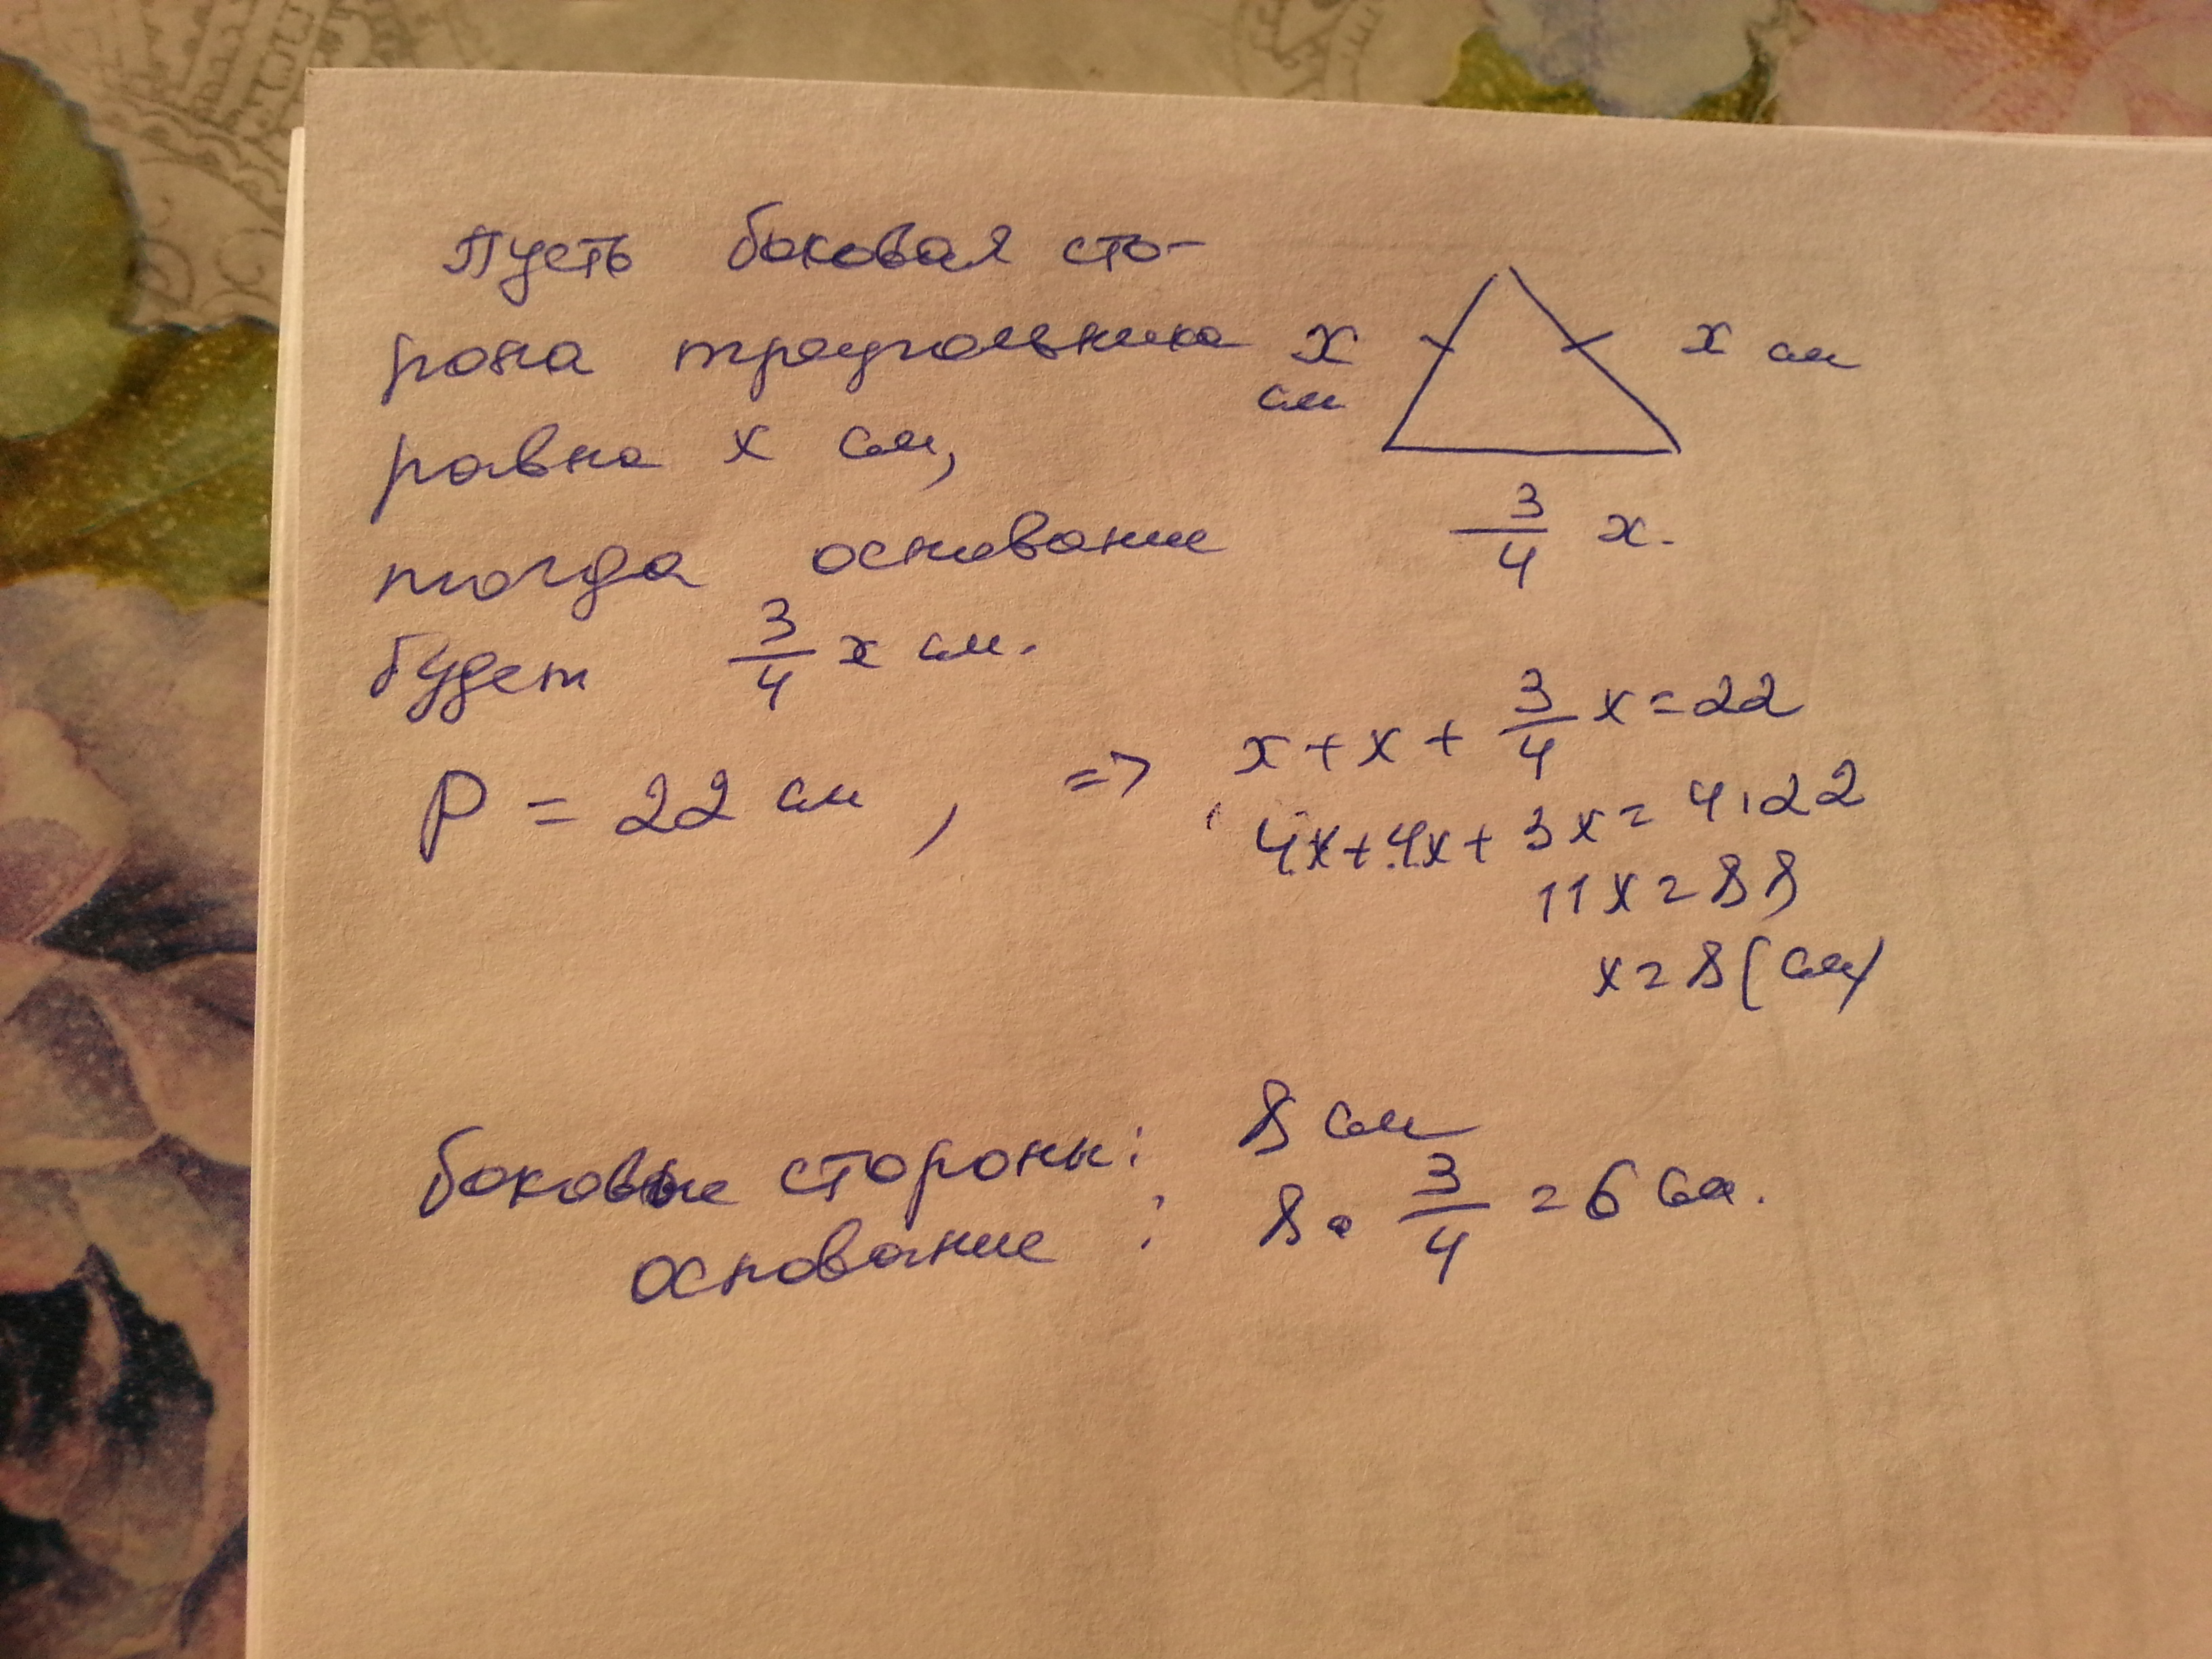 Пусть боковая сто-
рона треугольника
равна x см,
тогда основание
будет 3/4 x см.
x см
x см
3/4 x.
P = 22 см, => x + x + 3/4 x = 22
4x + 4x + 3x = 4·22
11x = 88
x = 8 (см)
боковые стороны: 8 см
основание : 8 · 3/4 = 6 см.